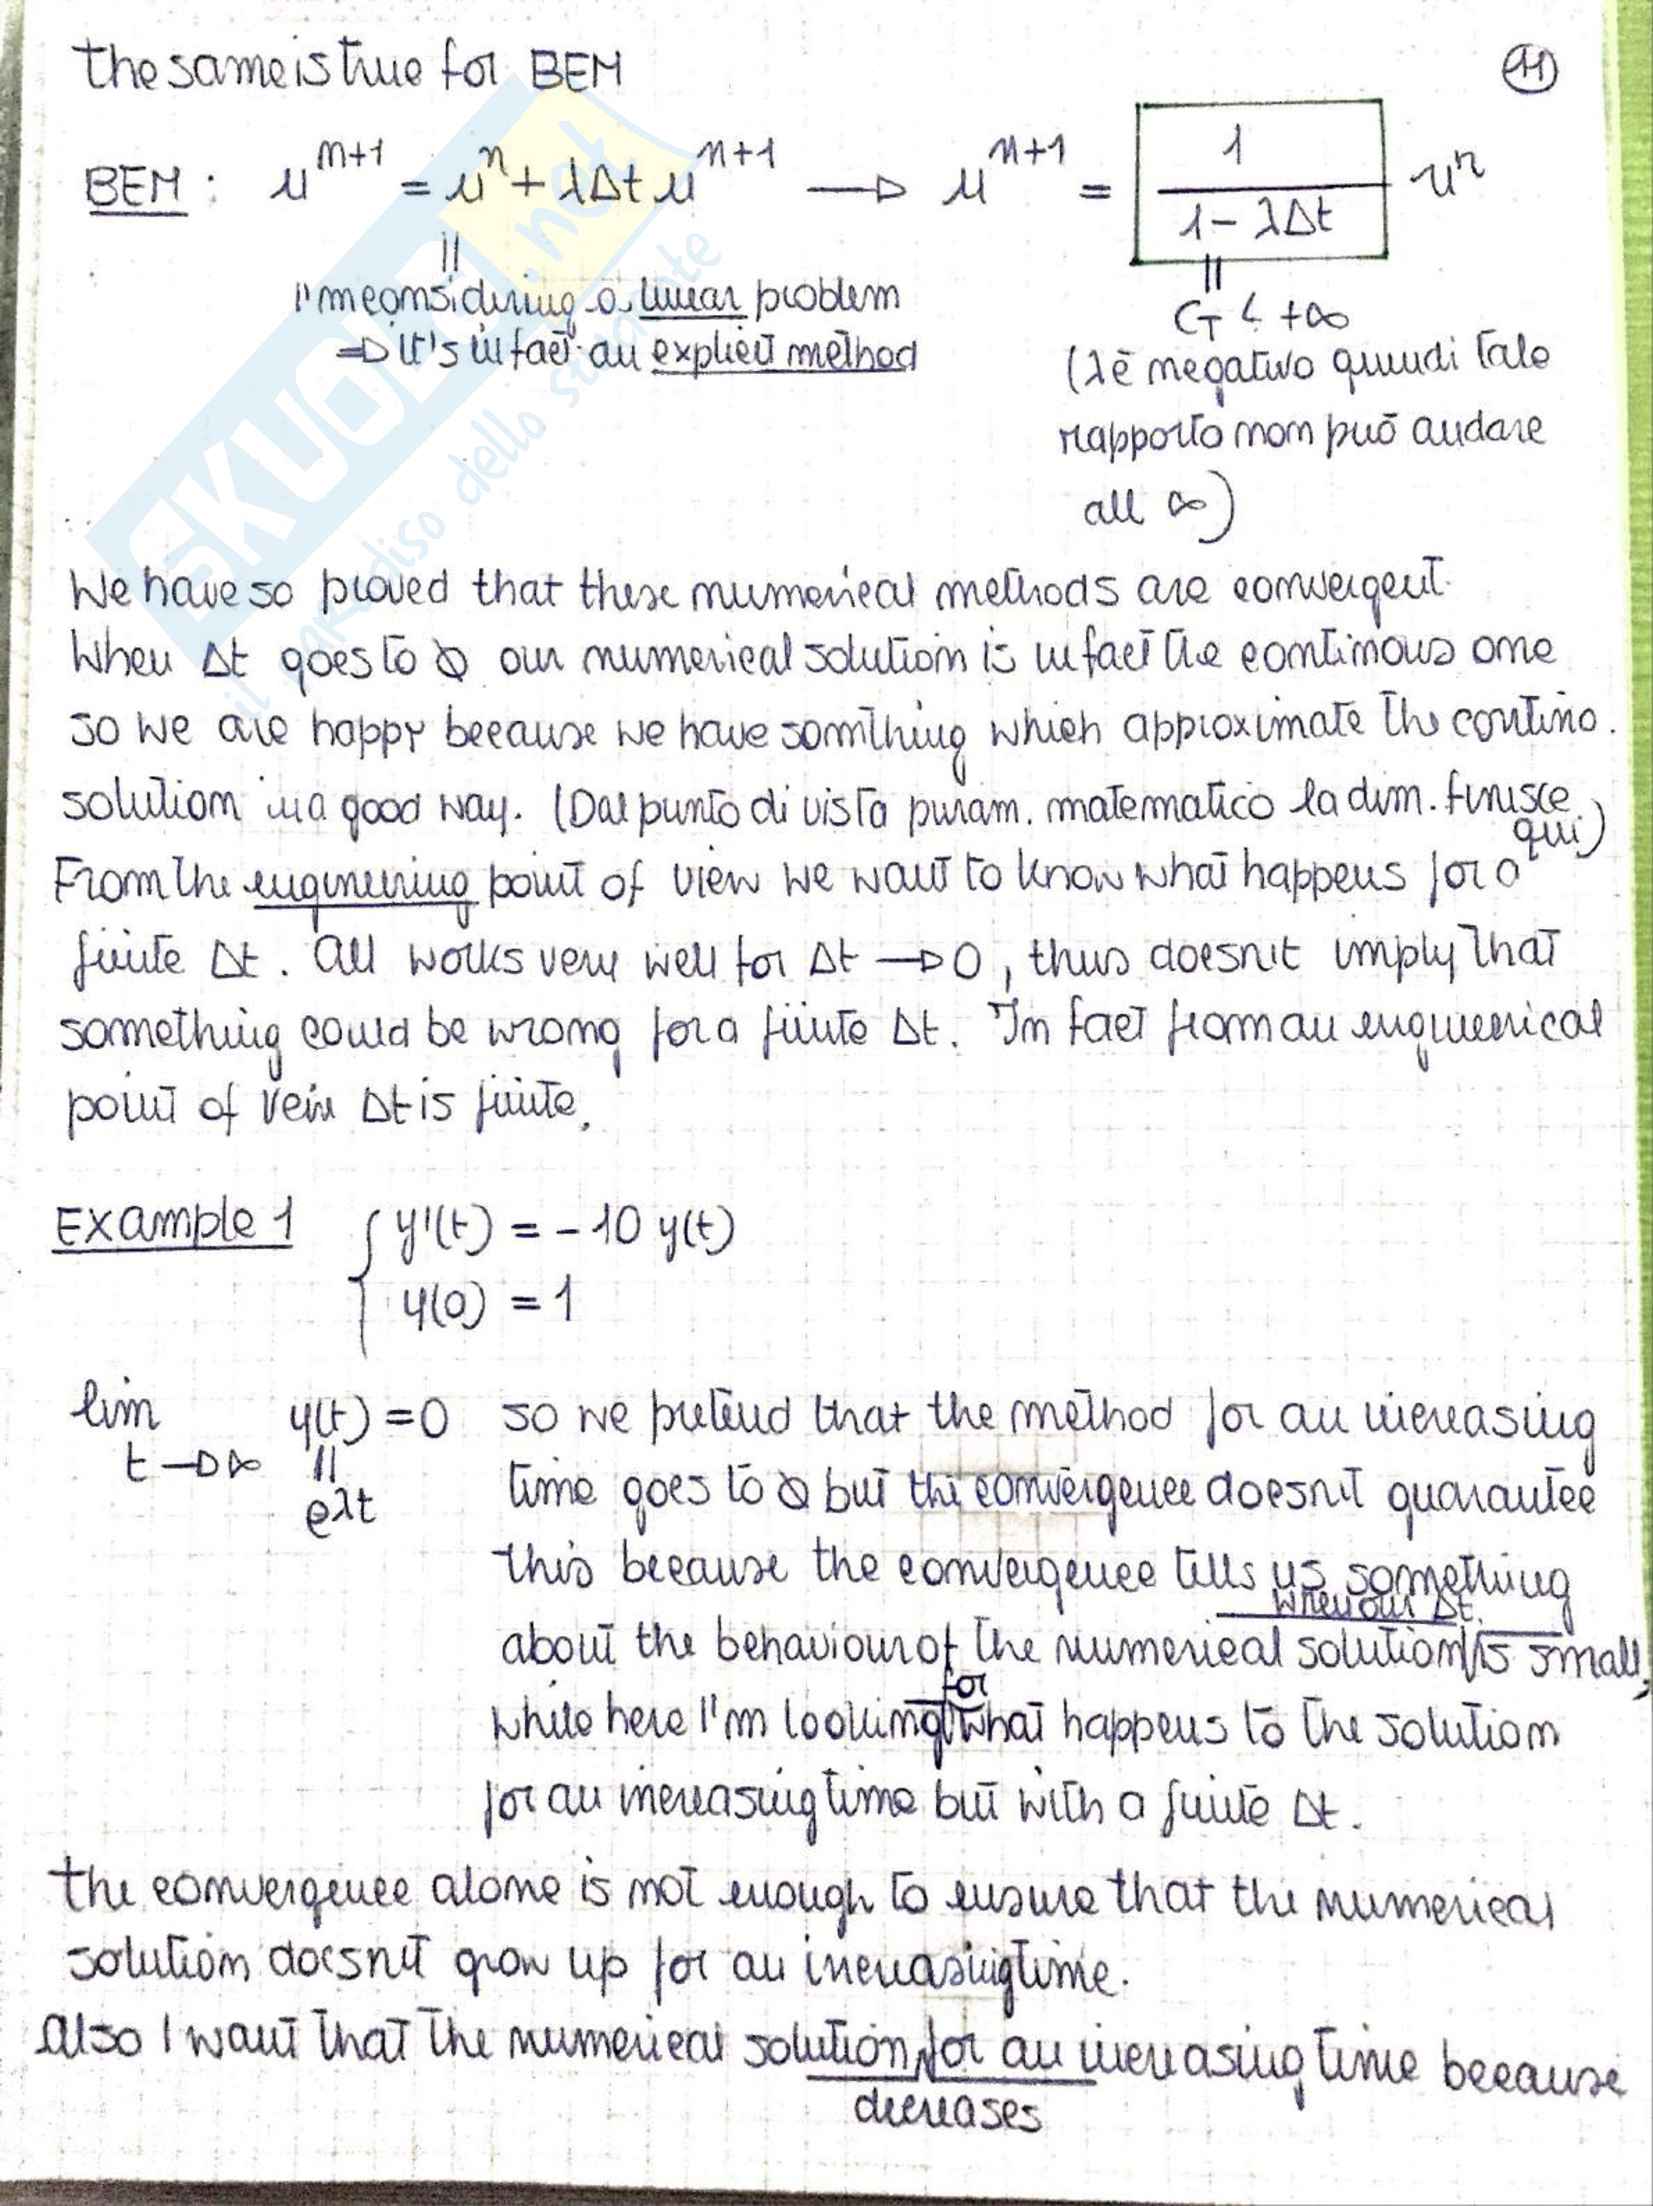 the same is true for BEM
11
BEM : u^{n+1} = u^n + λΔt u^{n+1} → u^{n+1} = 1/(1-λΔt) u^n
=
=
I'm considering a linear problem
C_T < +∞
=> it's in fact an explicit method
(λ è negativo quindi tale
rapporto non può andare
all ∞)
We have so proved that these numerical methods are convergent.
When Δt goes to 0 our numerical solution is in fact the continous one
so we are happy because we have somthing which approximate the contino.
solution in a good way. (Dal punto di vista puram. matematico la dim. finisce
qui)
From the engineering point of view we want to know what happens for a
finite Δt. All works very well for Δt → 0, thus doesn't imply that
something could be wrong for a finite Δt. In fact from an enginerical
point of veiw Δt is finite.
Example 1 { y'(t) = -10 y(t)
y(0) = 1
lim t→∞ y(t) = 0 so we pretend that the method for an increasing
=
e^{λt}
time goes to 0 but the convergence doesn't guarantee
this because the convergence tells us something
when our Δt
about the behaviour of the numerical solution is small,
for
while here I'm looking what happens to the solution
for an increasing time but with a finite Δt.
the convergence alone is not enough to ensure that the numerical
solution doesn't grow up for an increasing time.
Also I want that the numerical solution for an increasing time because
decreases
SKUOLA.net
il paradiso dello studente